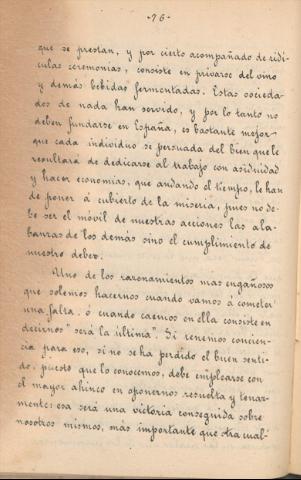 -76-
que se prestan, y por cierto acompañado de ridí-
culas ceremonias, consiste en privarse del vino
y demás bebidas fermentadas. Estas socieda-
des de nada han servido, y por lo tanto no
deben fundarse en España, es bastante mejor
que cada individuo se persuada del bien que le
resultará de dedicarse al trabajo con asiduidad
y hacer economías, que andando el tiempo, le han
de poner á cubierto de la miseria, pues no de-
be ser el móvil de nuestras acciones las ala-
banzas de los demás sino el cumplimiento de
nuestro deber.
Uno de los razonamientos mas engañosos
que solemos hacernos cuando vamos á cometer
una falta. ó cuando caemos en ella consiste en
decirnos "será la última". Si tenemos concien-
cia para eso, si no se ha perdido el buen senti-
do, puesto que lo conocemos, debe emplearse con
el mayor ahinco en oponernos resuelta y tenaz-
mente: esa será una victoria conseguida sobre
nosotros mismos, más importante que otra cual-